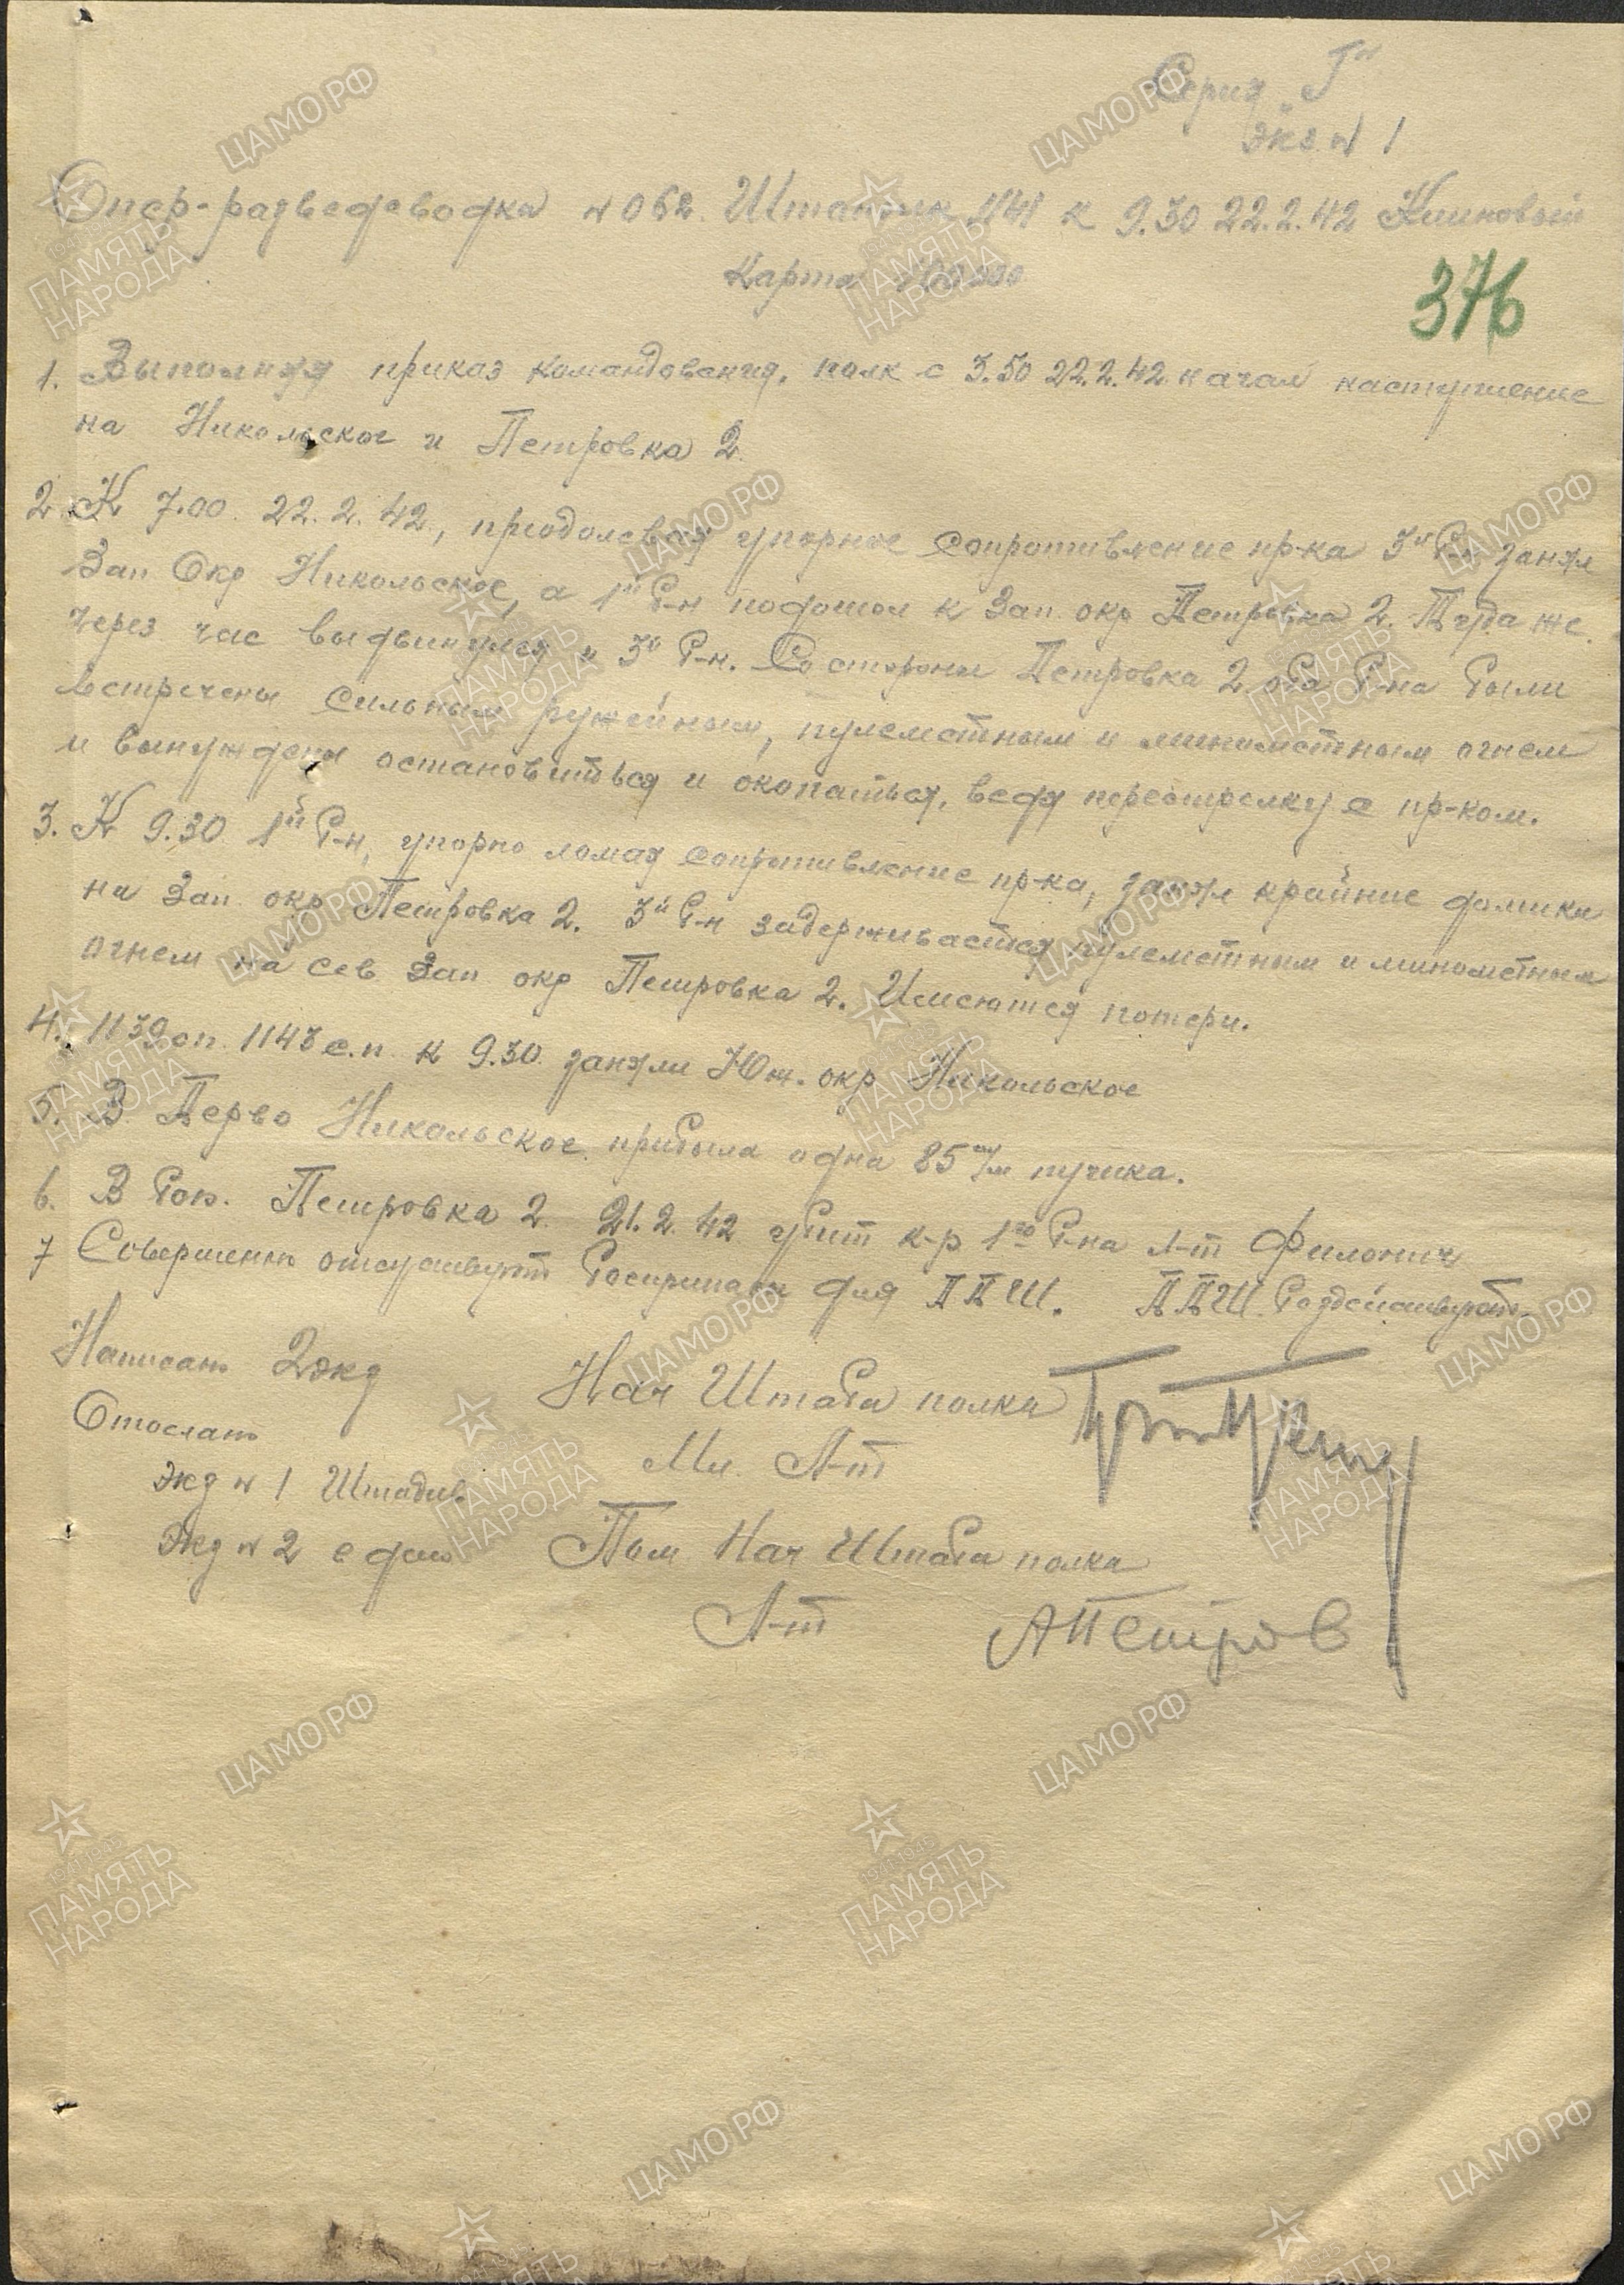 Серия "Г"
Экз. № 1
Опер-разведсводка № 062. Штаполк 1141 к 9.30 22.2.42 Климовый
Карта 100000
376
1. Выполняя приказ командования, полк с 3.50 22.2.42 начал наступление
на Никольское и Петровка 2
2. К 7.00 22.2.42, преодолевая упорное сопротивление пр-ка 3й б-н занял
Зап. Окр Никольское, а 1й б-н подошол к Зап. окр Петровка 2. Туда же
через час выдвинулся и 3й б-н. Со стороны Петровка 2 оба б-на были
встречены сильным ружейным, пулеметным и минометным огнем
и вынуждены остановиться и окопаться, ведя перестрелку с пр-ком.
3. К 9.30 1й б-н, упорно ломая сопротивление пр-ка, занял крайние домики
на Зап. окр Петровка 2. 3й б-н задерживается пулеметным и минометным
огнем на сев Зап окр Петровка 2. Имеются потери.
4. 1139 сп. 1143 с.п. к 9.30 заняли Юж. окр Никольское
5. В Перво Никольское прибыла одна 85 м/м пушка.
6. В бою Петровка 2 21.2.42 убит к-р 1го б-на л-т Филонич
7 Совершенно отсутствуют боеприпасы для ППШ. ППШ бездействуют.
Написано 2 экз
Нач Штаба полка
Отослано
Мл. Л-т
экз № 1 Штадив
Экз № 2 в дело
Пом Нач Штаба полка
Л-т АПетров